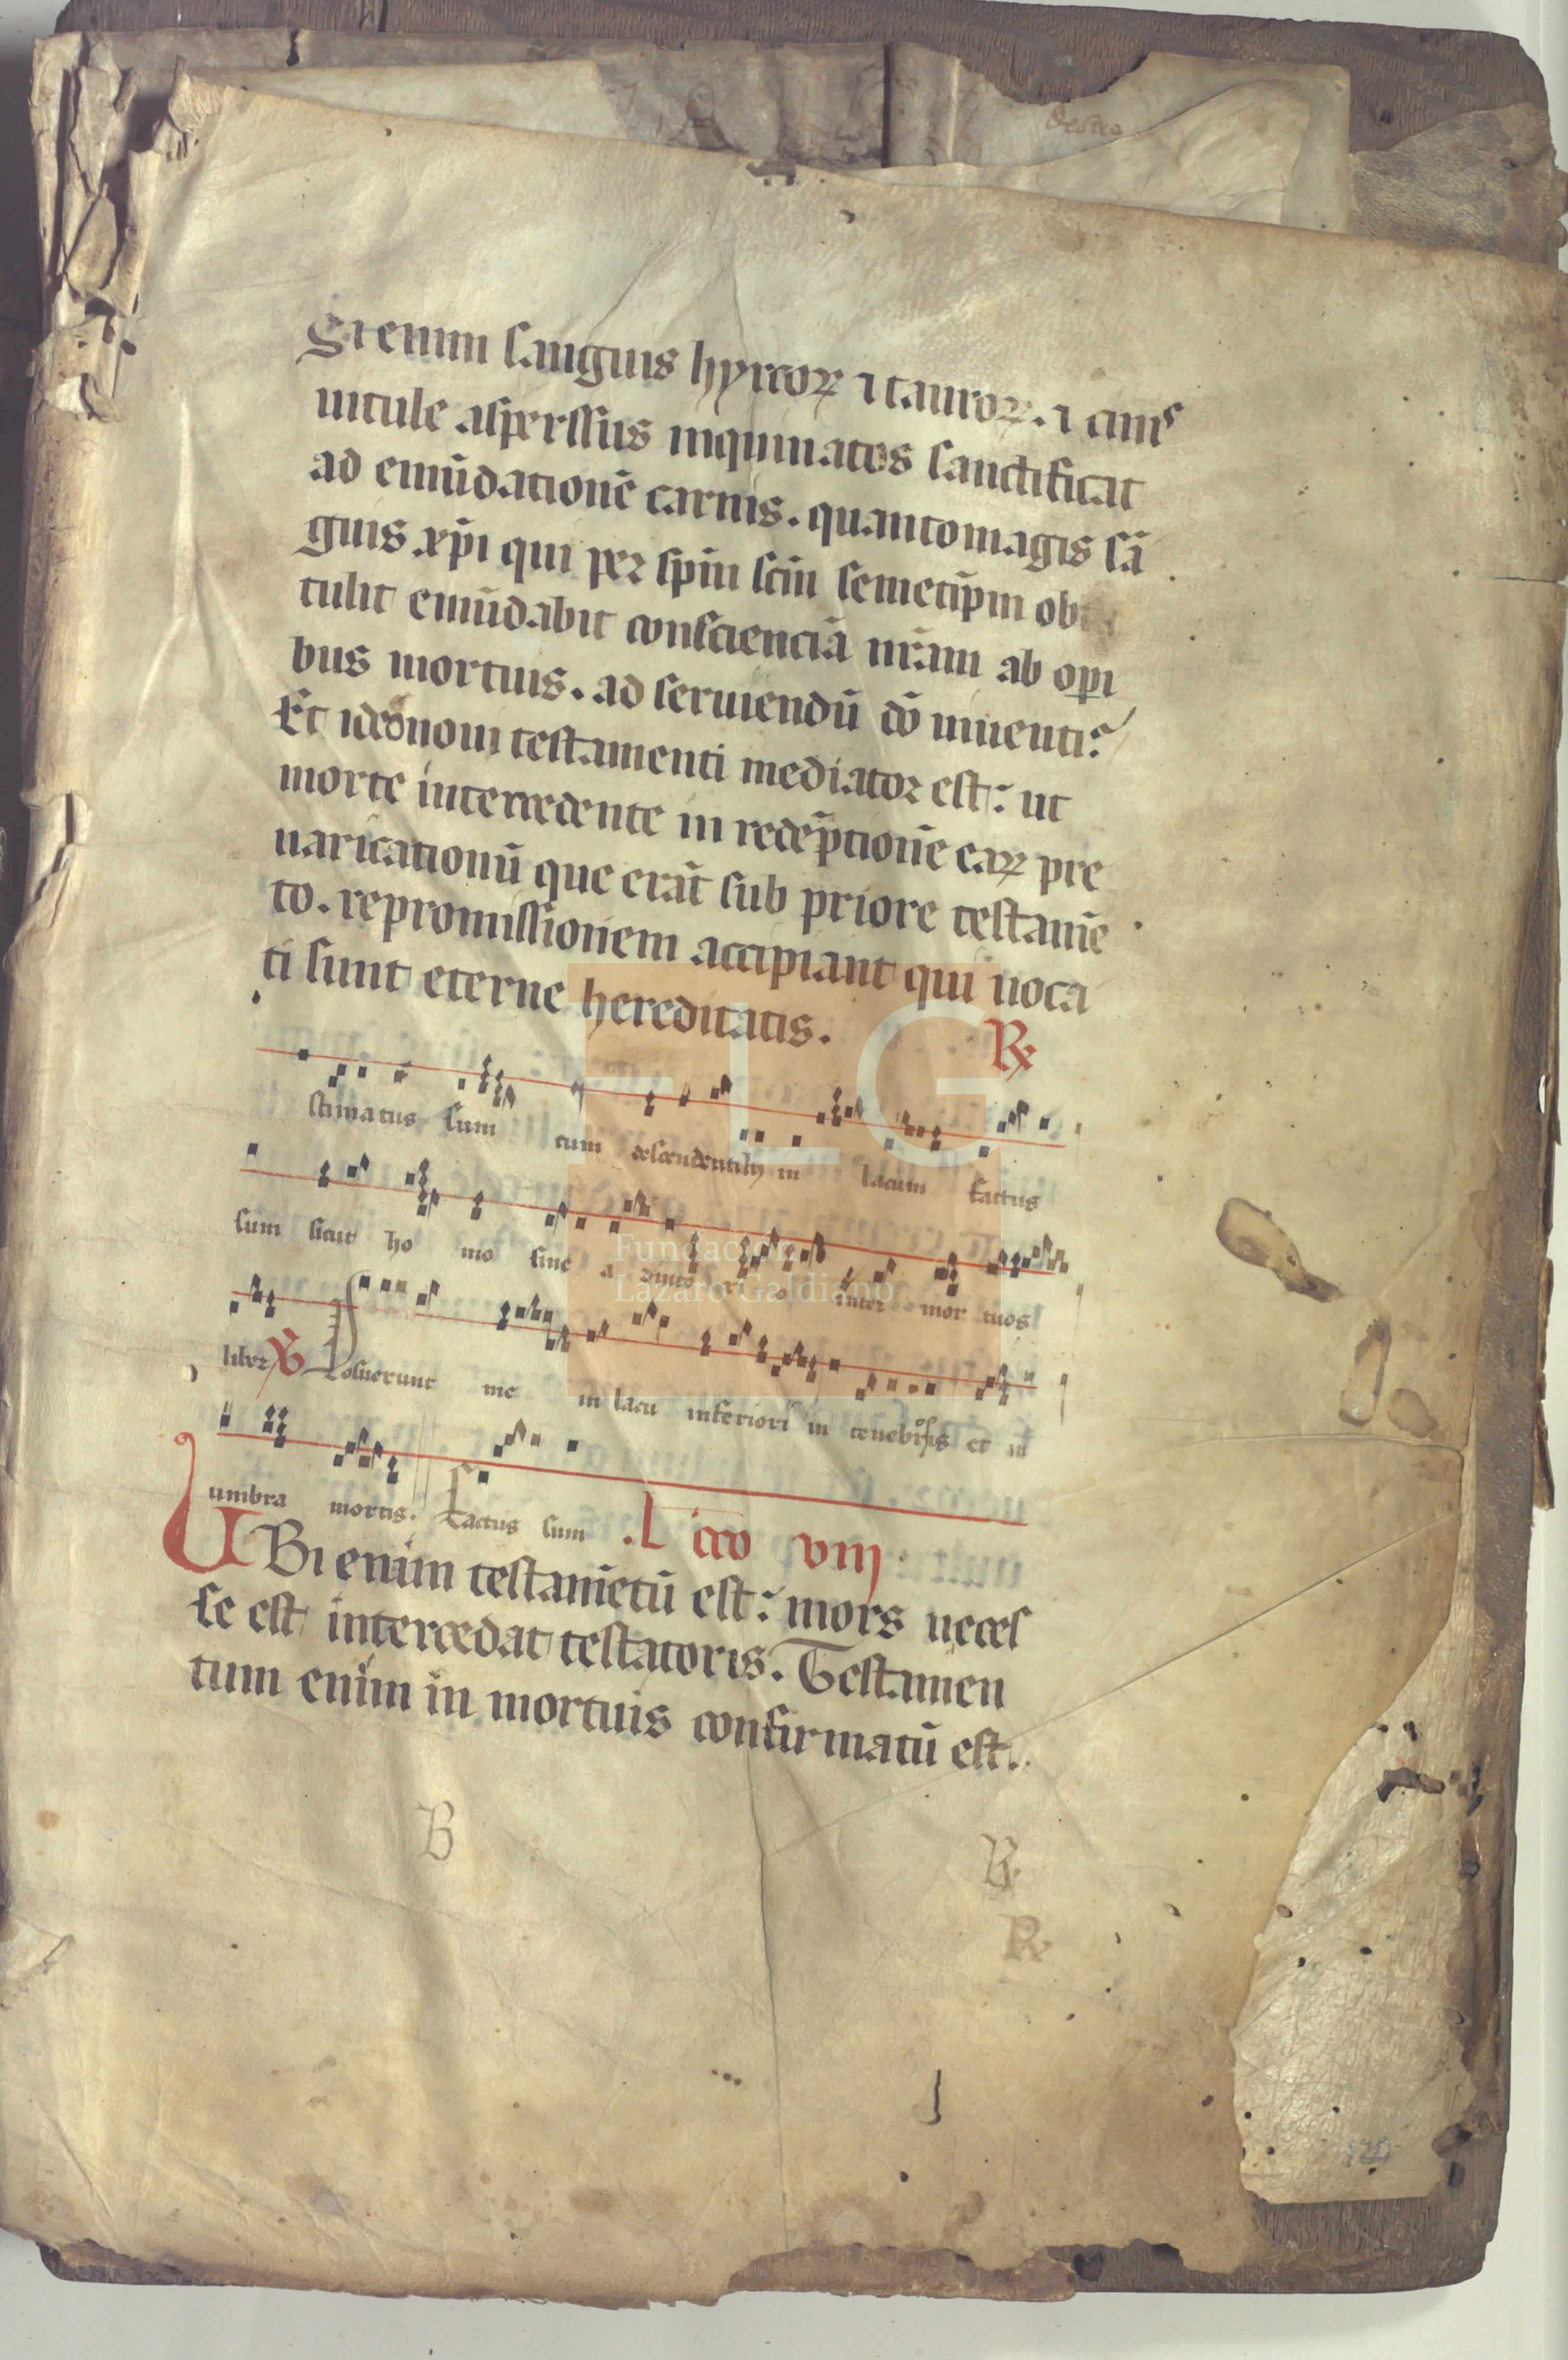 destra
Si enim sanguis hyrcoꝝ ⁊ tauroꝝ. ⁊ cinis
uitule asperssus inquinatos sanctificat
ad emūdationē carnis. quanto magis sā
guis xp̄i qui per sp̄m sc̄m semetip̄m ob
tulit emūdabit conscienciā nr̄am ab opi
bus mortuis. ad seruiendū dō uiuenti.
Et ideo noui testamenti mediator est: ut
morte intercedente in redēptionē eaꝝ pre
uaricationū que erāt sub priore testamē
to. repromissionem accipiant qui uoca
ti sunt eterne hereditatis. ℟
stimatus sum cum descendentibꝫ in lacum factus
sum sicut ho mo sine a diuto ri o inter mor tuos
liber ℣ Posuerunt me in lacu inferiori in tenebrosis et in
umbra mortis. Factus sum .L cco viij
UBi enim testamētū est: mors neces
se est intercedat testatoris. Testamen
tum enim in mortuis confirmatū est.
B
℟
℟
FLG
Fundación
Lázaro Galdiano